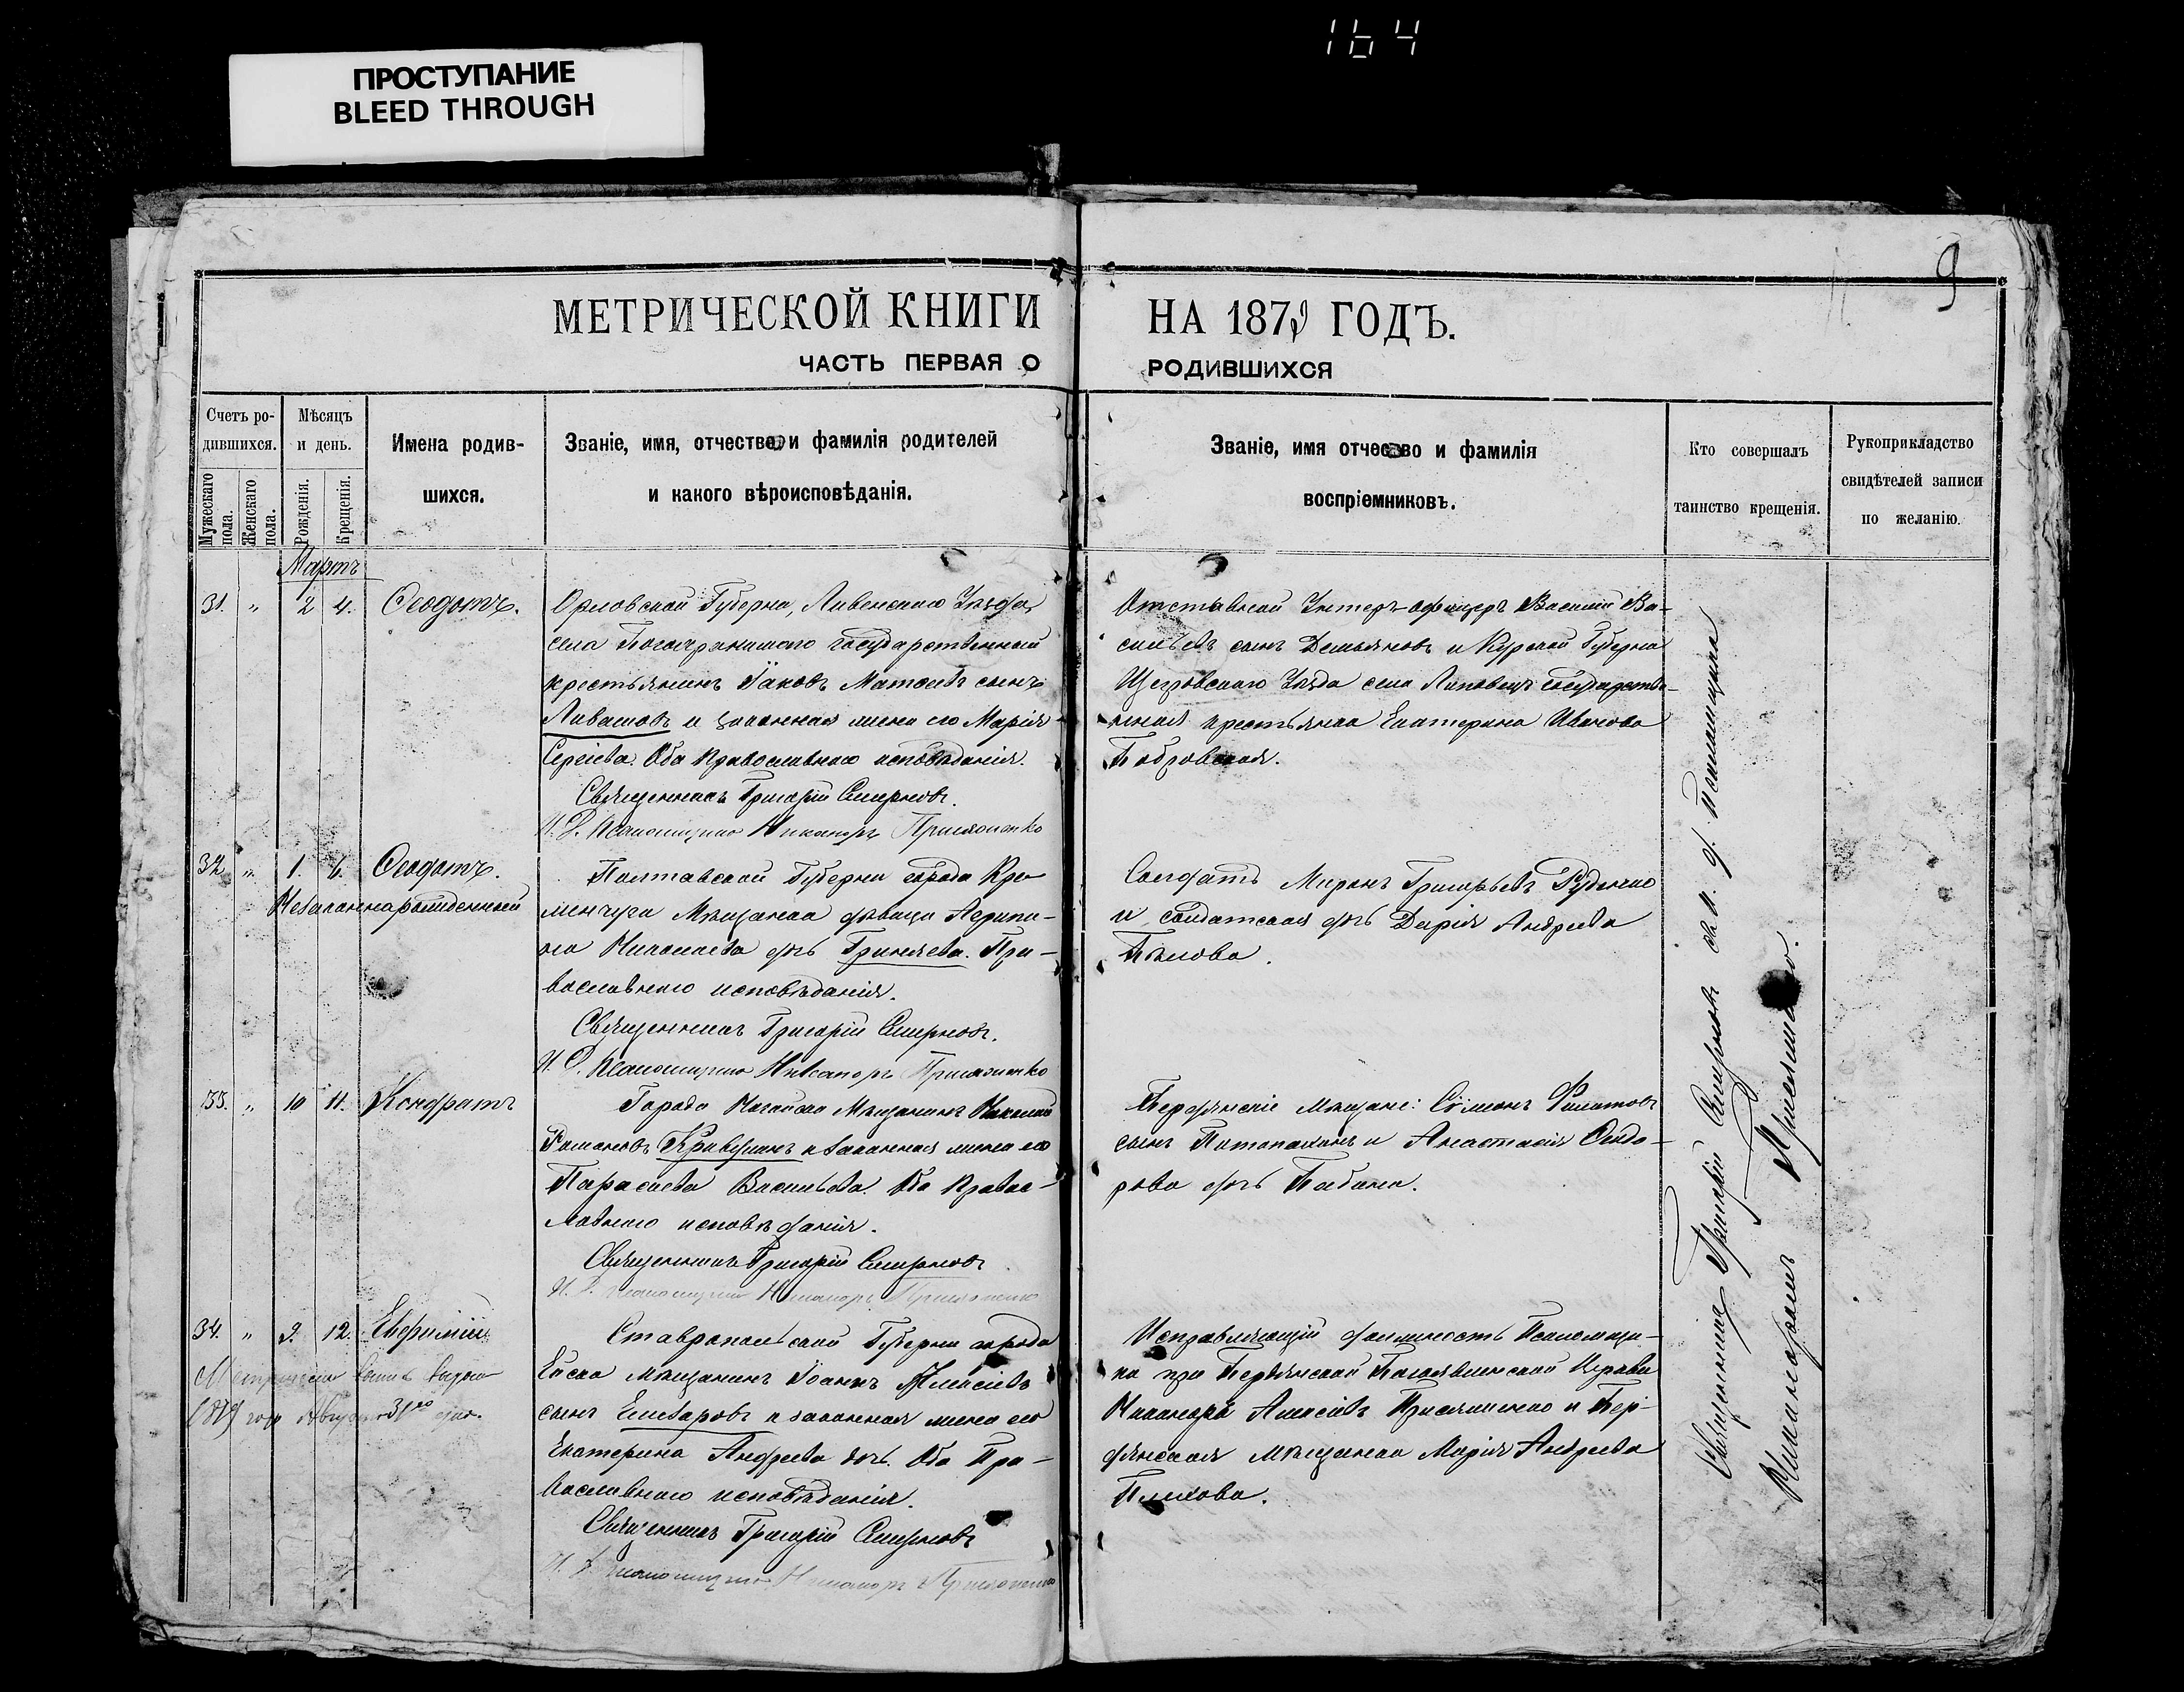 164
ПРОСТУПАНИЕ
BLEED THROUGH
9
МЕТРИЧЕСКОЙ КНИГИ НА 1879 ГОДЪ.
ЧАСТЬ ПЕРВАЯ О РОДИВШИХСЯ
Счетъ ро-
дившихся.
Мужескаго
пола.
Женскаго
пола.
Мѣсяцъ
и день.
Рожденія.
Крещенія.
Имена родив-
шихся.
Званіе, имя, отчество и фамилія родителей
и какого вѣроисповѣданія.
Званіе, имя отчество и фамилія
воспріемниковъ.
Кто совершалъ
таинство крещенія.
Рукоприкладство
свидѣтелей записи
по желанію.
Мартъ
31. " 2 4. Ѳеодотъ.
Орловской Губерніи, Ливенскаго Уѣзда,
села государственный
крестьянинъ Іаковъ Матѳеевъ сынъ
Ливашовъ и законная жена его Марія
Сергіева. Оба Православнаго исповѣданія.
Священникъ Григорій Смирновъ.
И. Д. Псаломщика Никаноръ
Отставной Унтеръ-офицеръ Василій Ва-
сильевъ сынъ Демьяновъ и Курской Губерніи
Щигровскаго Уѣзда села Липовецъ государстве-
нная крестьянка Екатерина Иванова
Бобровская.
32. " 1. 4. Ѳеодотъ.
Незаконнорожденный
Полтавской Губерніи города Кре-
менчуга Мѣщанка дѣвица Агрипи-
на Николаева дочь Гриняева. Пра-
вославнаго исповѣданія.
Священникъ Григорій Смирновъ.
И. Д. Псаломщика Никаноръ
Солдатъ Миронъ Григорьевъ Руденко
и солдатская дочь Дарія Андреева
Бѣлова.
33. " 10 11. Кондратъ
Города Ногайска Мѣщанинъ Николай
Романовъ и законная жена его
Параскева Васильева. Оба Правос-
лавнаго исповѣданія.
Священникъ Григорій Смирновъ
И. Д. Псаломщика Никаноръ
Бердянскіе мѣщане: Сѵмеонъ Филатовъ
сынъ и Анастасія Сидо-
рова дочь
34. " 9. 12. Евѳимій
1879 года Августа 31го дня.
Ставропольской Губерніи города
Ейска мѣщанинъ Іоаннъ Алексіевъ
сынъ Елизаровъ и законная жена его
Екатерина Андреева дочь. Оба Пра-
вославнаго исповѣданія.
Священникъ Григорій Смирновъ
И. Д. Псаломщика Никаноръ
Исправляющій должность Псаломщи-
ка при Бердянской Церкви
Никаноръ Алексіевъ и Бер-
дянская мѣщанка Марія Андреева
Священникъ Григорій Смирновъ съ и. д. Псаломщика
Никаноромъ